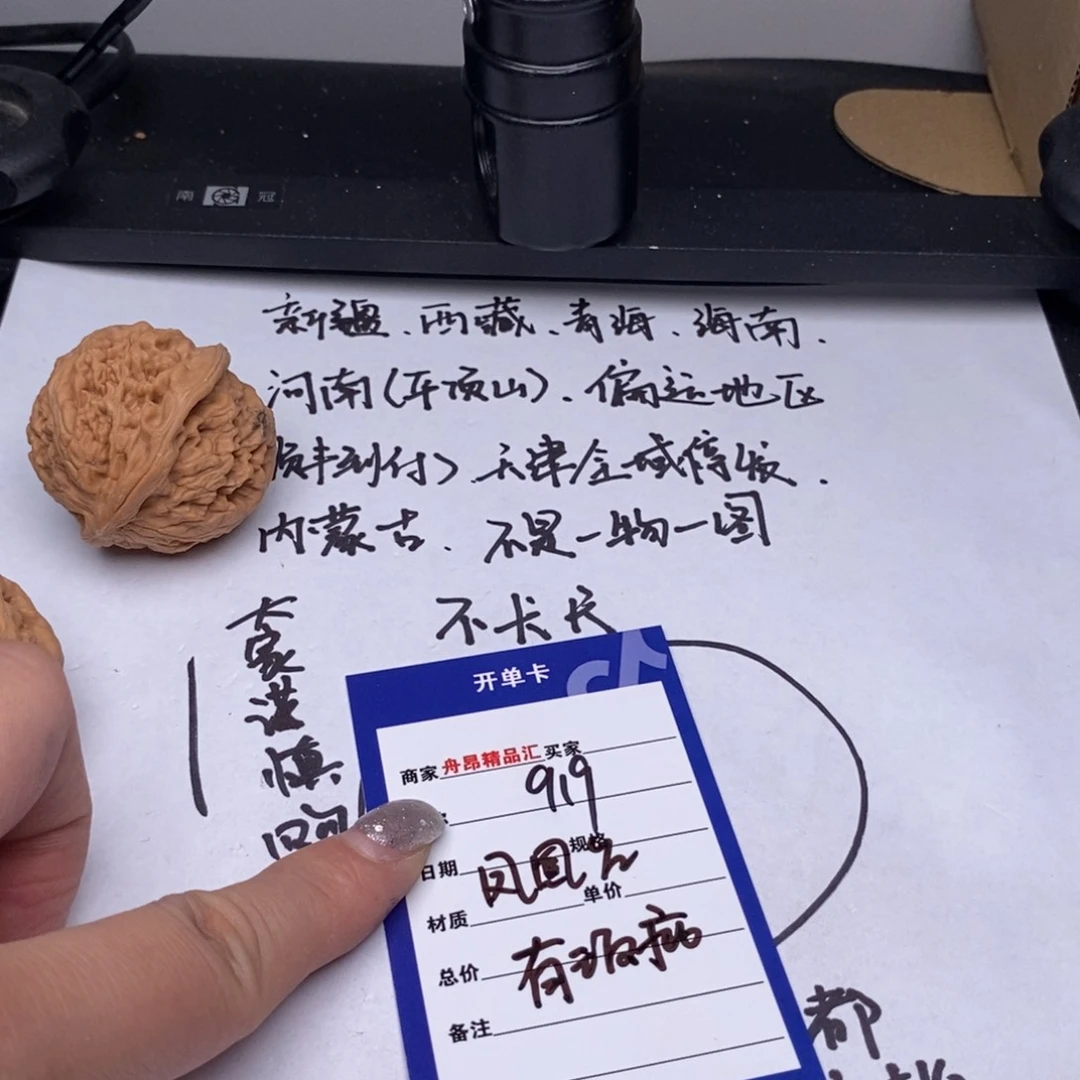 南 冠
新疆、西藏、青海、海南.
河南(平顶山)、偏远地区
顺丰到付> 天津全域停发.
内蒙古、不是一物一图
不卡尺
大家谨慎
开单卡
商家 舟昂精品汇 买家
919
日期 规格
凤凰
材质 单价
有瑕疵
总价
备注
都